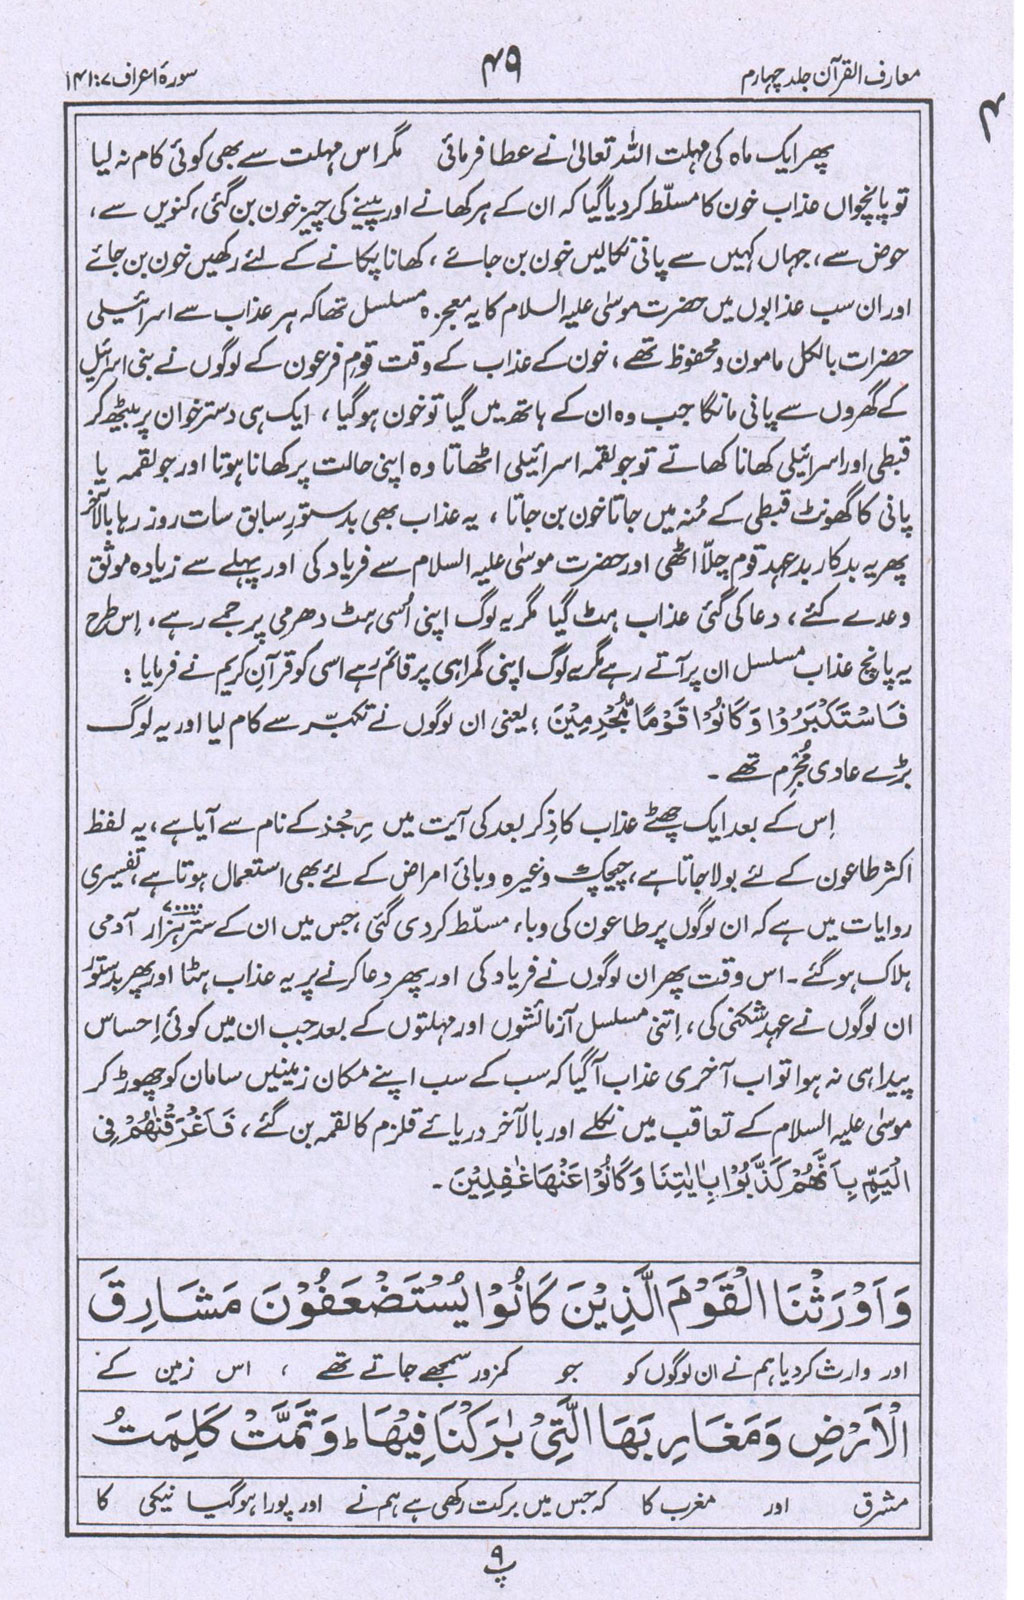 معارف القرآن جلد چہارم
۴۹
سورۂ اعراف ۷: ۱۴۱
پھر ایک ماہ کی مہلت اللہ تعالیٰ نے عطا فرمائی مگر اس مہلت سے بھی کوئی کام نہ لیا
تو پانچواں عذاب خون کا مسلّط کردیا گیا کہ ان کے ہر کھانے اور پینے کی چیز خون بن گئی، کنویں سے،
حوض سے، جہاں کہیں سے پانی نکالیں خون بن جائے، کھانا پکانے کے لئے رکھیں خون بن جائے
اور ان سب عذابوں میں حضرت موسیٰ علیہ السلام کا یہ معجزہ مسلسل تھا کہ ہر عذاب سے اسرائیلی
حضرات بالکل مامون و محفوظ تھے، خون کے عذاب کے وقت قومِ فرعون کے لوگوں نے بنی اسرائیل
کے گھروں سے پانی مانگا جب وہ ان کے ہاتھ میں گیا تو خون ہوگیا، ایک ہی دسترخوان پر بیٹھ کر
قبطی اور اسرائیلی کھانا کھاتے تو جو لقمہ اسرائیلی اٹھاتا وہ اپنی حالت پر کھانا ہوتا اور جو لقمہ یا
پانی کا گھونٹ قبطی کے مُنہ میں جاتا خون بن جاتا، یہ عذاب بھی بدستورِ سابق سات روز رہا بالآخر
پھر یہ بدکار بدعہد قوم چلّا اٹھی اور حضرت موسیٰ علیہ السلام سے فریاد کی اور پہلے سے زیادہ موثق
وعدے کئے، دعا کی گئی عذاب ہٹ گیا مگر یہ لوگ اپنی اُسی ہٹ دھرمی پر جمے رہے، اِس طرح
یہ پانچ عذاب مسلسل ان پر آتے رہے مگر یہ لوگ اپنی گمراہی پر قائم رہے اسی کو قرآن کریم نے فرمایا:
فَاسْتَكْبَرُوْا وَكَانُوْا قَوْمًا مُّجْرِمِيْنَ؛ یعنی ان لوگوں نے تکبّر سے کام لیا اور یہ لوگ
بڑے عادی مُجرِم تھے۔
اِس کے بعد ایک چھٹے عذاب کا ذِکر بعد کی آیت میں رِجْز کے نام سے آیا ہے، یہ لفظ
اکثر طاعون کے لئے بولا جاتا ہے، چیچک وغیرہ وبائی امراض کے لئے بھی استعمال ہوتا ہے، تفسیری
روایات میں ہے کہ ان لوگوں پر طاعون کی وباء مسلّط کردی گئی، جس میں ان کے ستّر ہزار ۷۰۰۰۰ آدمی
ہلاک ہوگئے۔ اس وقت پھر ان لوگوں نے فریاد کی اور پھر دعا کرنے پر یہ عذاب ہٹا اور پھر بدستور
ان لوگوں نے عہد شکنی کی، اِتنی مسلسل آزمائشوں اور مہلتوں کے بعد جب ان میں کوئی اِحساس
پیدا ہی نہ ہوا تو اب آخری عذاب آگیا کہ سب کے سب اپنے مکان زمینیں سامان کو چھوڑ کر
موسیٰ علیہ السلام کے تعاقب میں نکلے اور بالآخر دریائے قلزم کا لقمہ بن گئے، فَاَغْرَقْنٰهُمْ فِی
الْيَمِّ بِاَنَّهُمْ كَذَّبُوْا بِاٰيٰتِنَا وَكَانُوْا عَنْهَا غٰفِلِيْنَ۔
وَاَوْرَثْنَا الْقَوْمَ الَّذِيْنَ كَانُوْا يُسْتَضْعَفُوْنَ مَشَارِقَ
اور وارث کردیا ہم نے ان لوگوں کو جو کمزور سمجھے جاتے تھے، اس زمین کے
الْاَرْضِ وَمَغَارِبَهَا الَّتِیْ بٰرَكْنَا فِيْهَا ؕ وَتَمَّتْ كَلِمَتُ
مشرق اور مغرب کا کہ جس میں برکت رکھی ہے ہم نے اور پورا ہوگیا نیکی کا
پ ۹